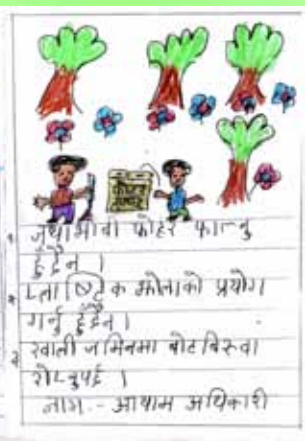 १. जथाभावी फोहर फाल्नु
हुँदैन ।
२. प्लाष्टिक झोलाको प्रयोग
गर्नु हुँदैन ।
३ खाली जमिनमा बोट बिरुवा
रोप्नुपर्छ ।
नाम :- आयाम अधिकारी